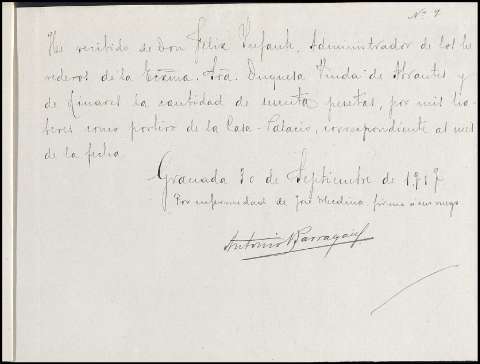 Nº 7
He recibido de Don Felix Infante, Administrador de los he
rederos de la Excma. Sra. Duquesa Viuda de Abrantes y
de Linares la cantidad de pesetas, por mis ha-
beres como portero de la Casa-Palacio, correspondiente al mes
de la fecha.
Granada 30 de Septiembre de 1917
Por enfermedad de José Medina firmo a su ruego
Antonio Barragán